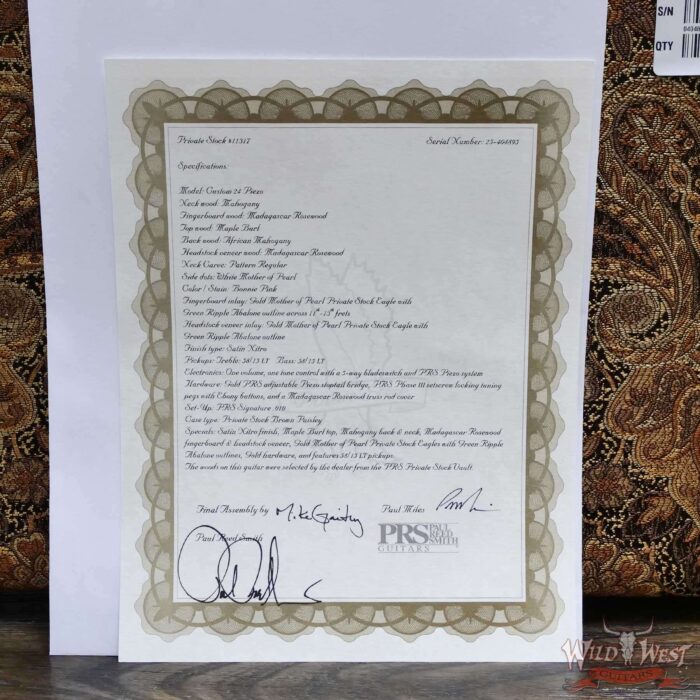 S/N
QTY
Private Stock #11317
Serial Number: 23-404893
Specifications:
Model: Custom 24 Piezo
Neck wood: Mahogany
Fingerboard wood: Madagascar Rosewood
Top wood: Maple Burl
Back wood: African Mahogany
Headstock veneer wood: Madagascar Rosewood
Neck Carve: Pattern Regular
Side dots: White Mother of Pearl
Color / Stain: Bonnie Pink
Fingerboard inlay: Gold Mother of Pearl Private Stock Eagle with
Green Ripple Abalone outline across 11th -13th frets
Headstock veneer inlay: Gold Mother of Pearl Private Stock Eagle with
Green Ripple Abalone outline
Finish type: Satin Nitro
Pickups: Treble: 58/15 LT Bass: 58/15 LT
Electronics: One volume, one tone control with a 5-way bladeswitch and PRS Piezo system
Hardware: Gold PRS adjustable Piezo stoptail bridge, PRS Phase III setscrew locking tuning
pegs with Ebony buttons, and a Madagascar Rosewood truss rod cover
Set-Up: PRS Signature .010
Case type: Private Stock Brown Paisley
Specials: Satin Nitro finish, Maple Burl top, Mahogany back & neck, Madagascar Rosewood
fingerboard & headstock veneer, Gold Mother of Pearl Private Stock Eagles with Green Ripple
Abalone outlines, Gold hardware, and features 58/15 LT pickups.
The woods on this guitar were selected by the dealer from the PRS Private Stock Vault.
Final Assembly by Mike Gaisting
Paul Miles
Paul Reed Smith
PRS PAUL REED SMITH
GUITARS
WILD WEST
GUITARS